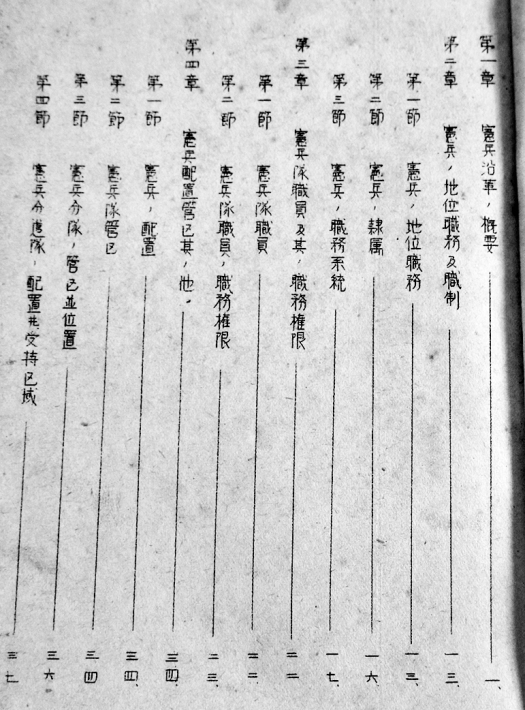 第一章 憲兵沿革ノ概要 一、
第二章 憲兵ノ地位職務及職制 一三、
第一節 憲兵ノ地位職務 一三、
第二節 憲兵ノ隷属 一六、
第三節 憲兵ノ職務系統 一七、
第三章 憲兵隊職員及其ノ職務権限 二二
第一節 憲兵隊職員 二二、
第二節 憲兵隊職員ノ職務権限 二三、
第四章 憲兵配置管区其ノ他 三四、
第一節 憲兵ノ配置 三四、
第二節 憲兵隊管区 三四
第三節 憲兵分隊ノ管区並位置 三六
第四節 憲兵分遣隊ノ配置並受持区域 三七